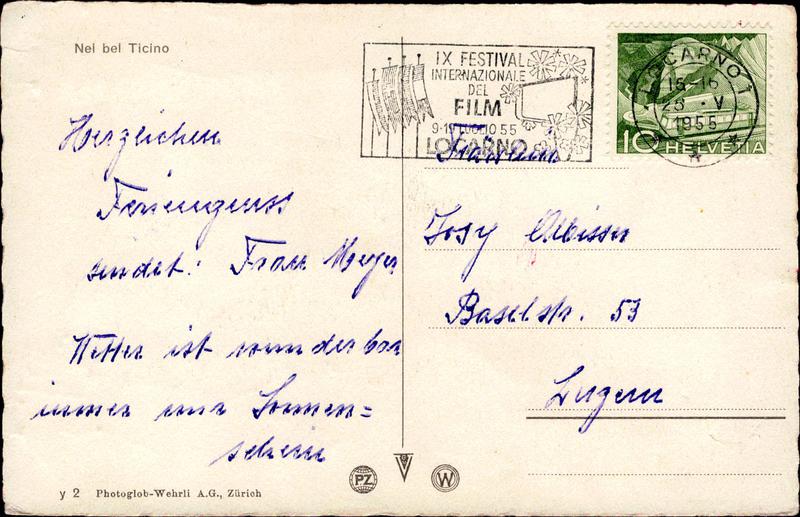 Nel bel Ticino
IX FESTIVAL
INTERNAZIONALE
DEL
FILM
9-19 LUGLIO 55
LOCARNO
LOCARNO 1
15-16
28 · V
1955
10 HELVETIA
Herzlichen
Feriengruss
sendet: Frau Meyer
Wetter ist wunderbar
immer nur Sonnen=
schein
Fräulein
Josy Albisser
Baselstr. 53
Luzern
PZ
W
y 2 Photoglob-Wehrli A.G., Zürich